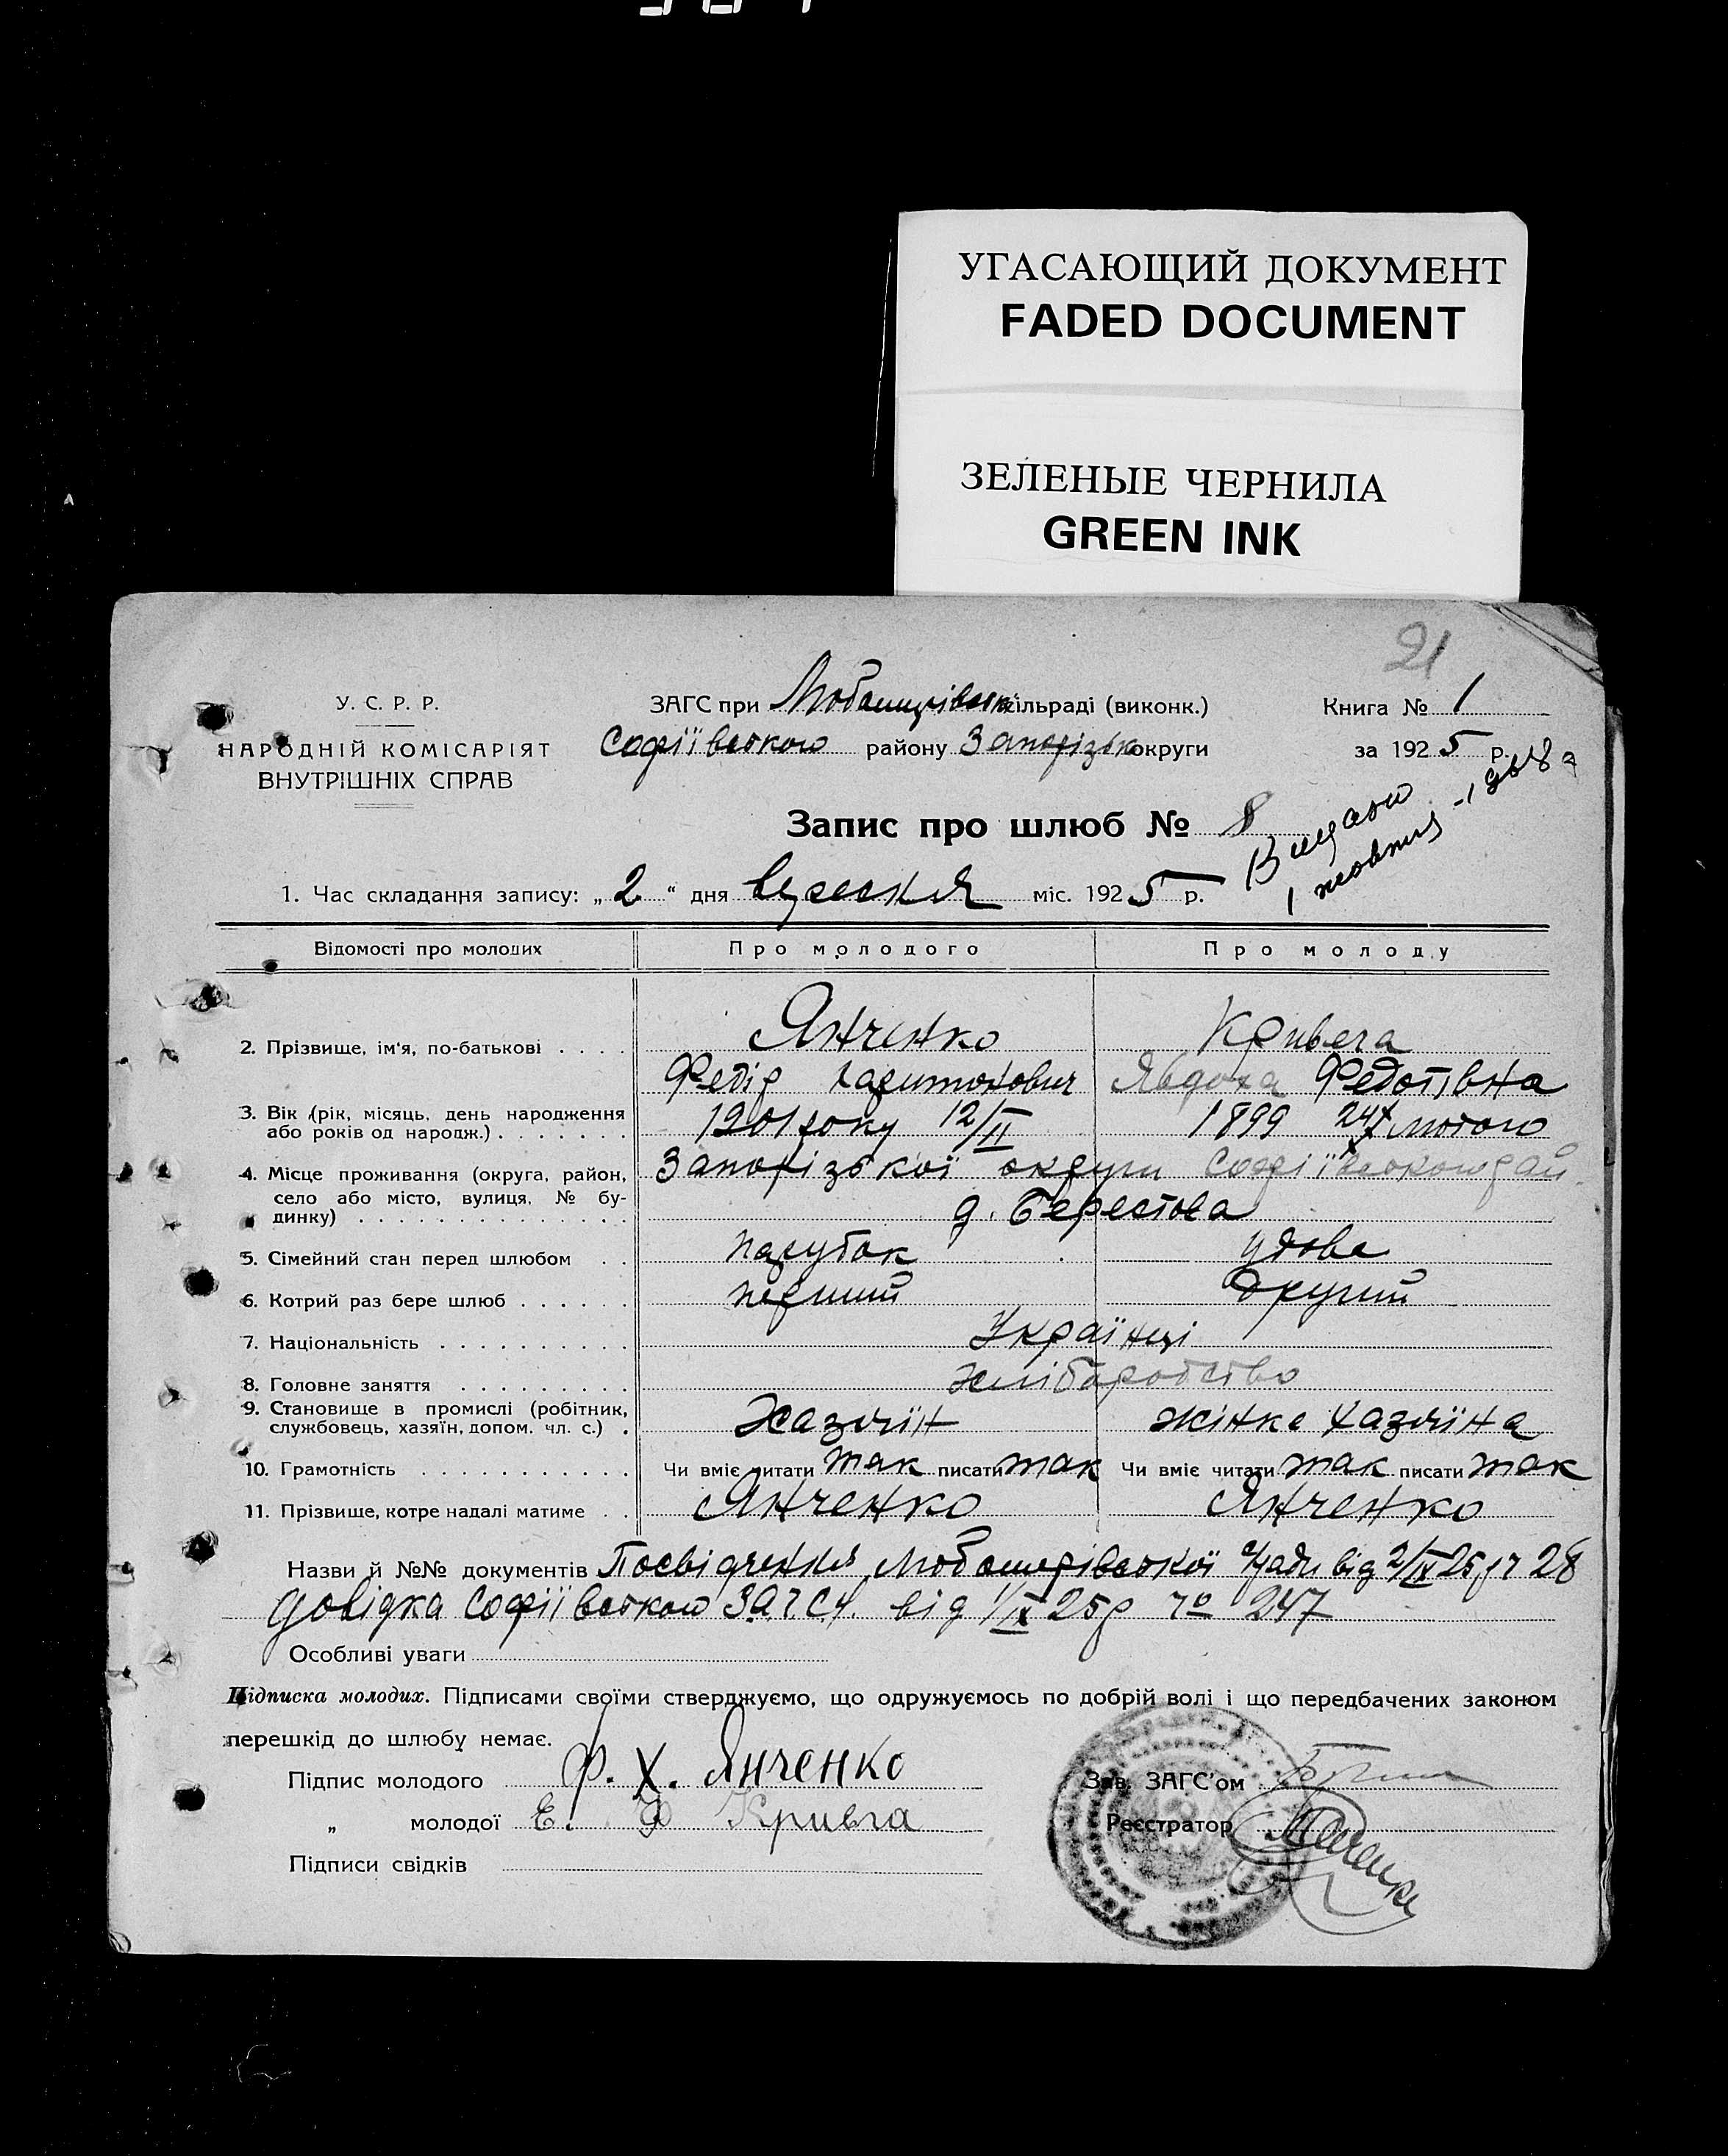 УГАСАЮЩИЙ ДОКУМЕНТ
FADED DOCUMENT
ЗЕЛЕНЫЕ ЧЕРНИЛА
GREEN INK
21
У. С. Р. Р.
НАРОДНІЙ КОМІСАРІЯТ
ВНУТРІШНІХ СПРАВ
ЗАГС при сільраді (виконк.)
Софіївського району Запорізько округи
Книга № 1
за 1925 р.
Запис про шлюб № 8
1 жовтня
1. Час складання запису: „2“ дня вересня міс. 1925 р.
Відомості про молодих Про молодого Про молоду
2. Прізвище, ім'я, по-батькові . . . . Янченко Кривега
Федір Харитонович Явдоха Федотівна
3. Вік (рік, місяць, день народження або років од народж.) . . . . . . . 1901 року 12/II 1899 24 лютого
4. Місце проживання (округа, район, село або місто, вулиця, № будинку) . . . . Запорізької округи Софіївського рай.
д. Берестова
5. Сімейний стан перед шлюбом . . парубок удова
6. Котрий раз бере шлюб . . . . . . перший другий
7. Національність . . . . . . . . . . Українці
8. Головне заняття . . . . . . . . . хліборобство
9. Становище в промислі (робітник, службовець, хазяїн, допом. чл. с.) . Хазяїн жінка хазяїна
10. Грамотність . . . . . . . . . . . Чи вміє читати так писати так Чи вміє читати так писати так
11. Прізвище, котре надалі матиме . . Янченко Янченко
Назви й №№ документів Посвідчення с/ради від 2/IX 25 р ч 28
довідка Софіївського ЗАГСу від 1/IX 25 р чо 247
Особливі уваги
Підписка молодих. Підписами своїми стверджуємо, що одружуємось по добрій волі і що передбачених законом
перешкід до шлюбу немає.
Підпис молодого Ф. Х. Янченко
„ молодої Е. Ф Кривга
Підписи свідків
Зав. ЗАГС'ом
Реєстратор